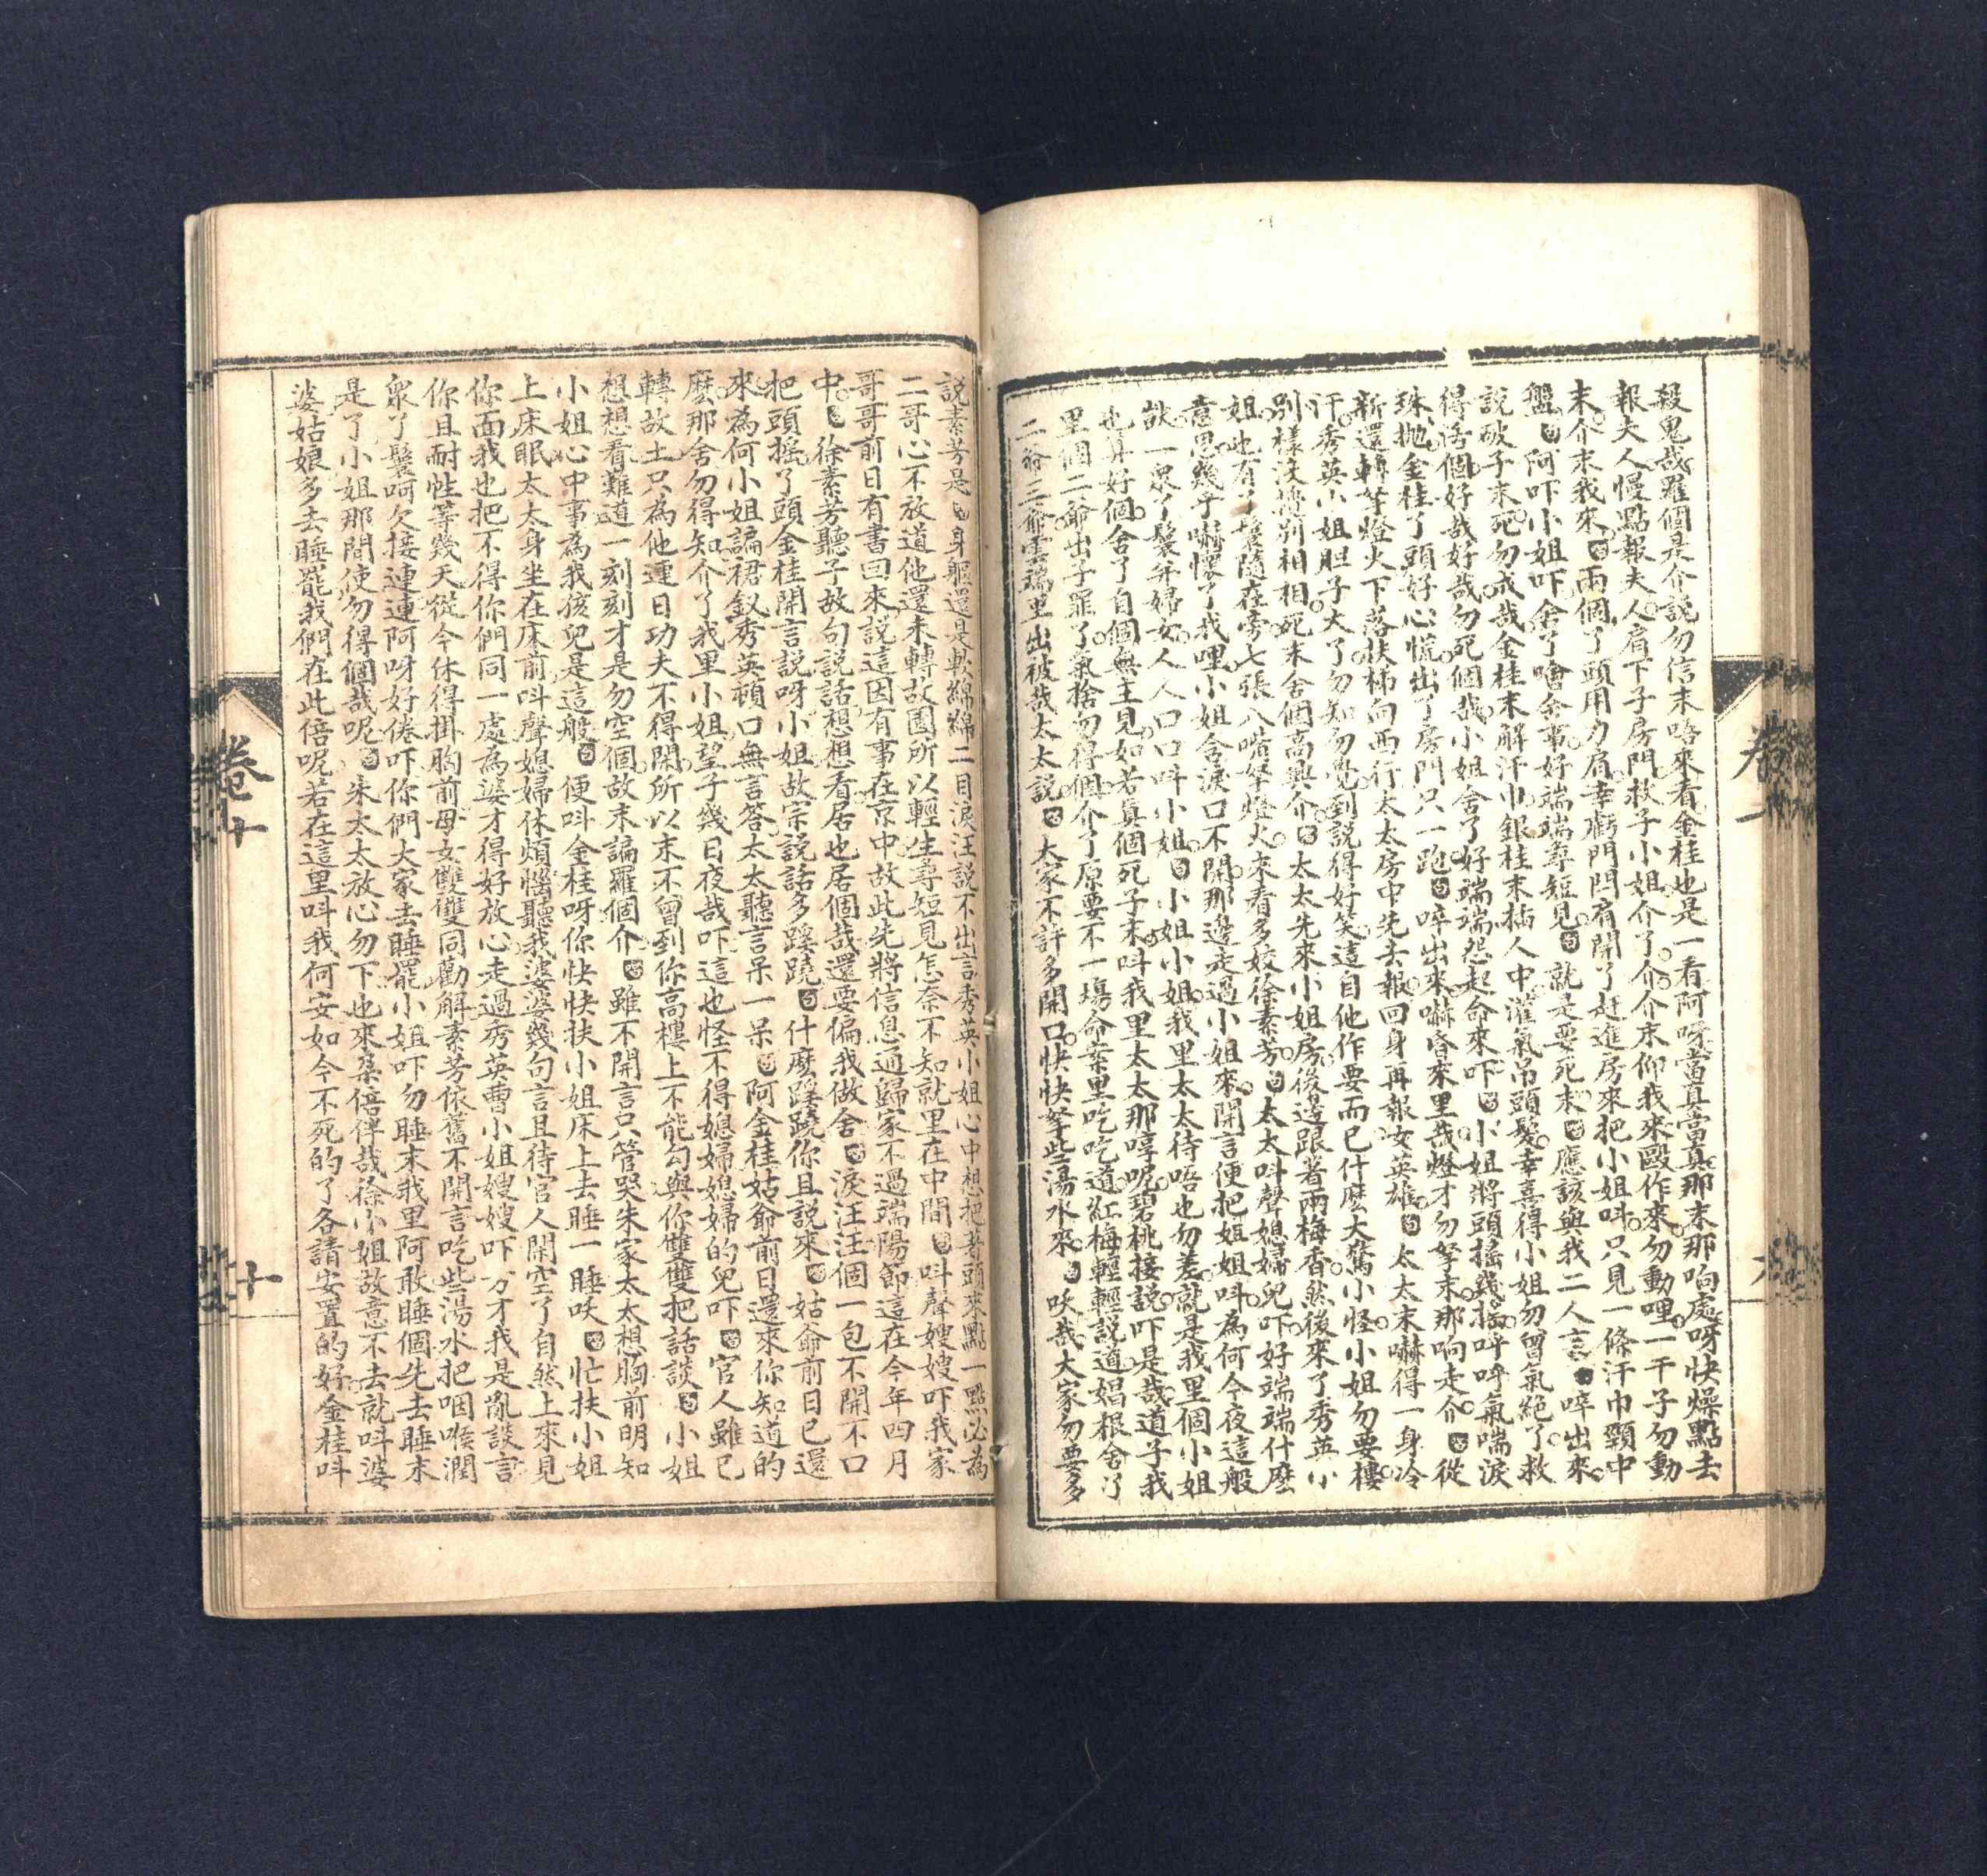 殺鬼哉羅個是介説勿信末唔來看金桂也是一看阿呀當真當真那末那响處呀快燥點去
報夫人慢點報夫人肩下子房門救子小姐介了介介末仰我來毆作來勿動哩一干子勿動
末介末我來兩個了頭用力肩幸虧門閂肩開了赶進房來把小姐呌只見一條汗巾頸中
盤阿吓小姐吓舍了噲舍事好端端尋短見就是要死末應該與我二人言啐出來
説破子末死勿成哉金桂末解汗巾銀桂末掐人中灌氣吊頭髮幸喜得小姐勿曾氣絕了救
得活個好哉好哉勿死個哉小姐舍了好端端怨起命來吓小姐將頭搖幾搖呼呼氣喘淚
珠抛金桂了頭好心慌出了房門只一跑啐出來嚇昏來里哉燈才勿拏末那响走介從
新還轉拏燈火下落扶梯向西行太太房中先去報回身再報女英雄太太末嚇得一身冷
汗秀英小姐胆子大了勿知勿覺到説得好笑這自他作要而已什麽大驚小怪小姐勿要樓
别樣没撓别相相死末舍個高興介太太先來小姐房後邊跟著兩梅香然後來了秀英小
姐也有了鬟隨在旁七張八嘴拏燈火來看多姣徐素芳太太呌聲媳婦兒吓好端端什麽
意思幾乎嚇懷了我哩小姐含淚口不開那邊走過小姐來開言便把姐姐呌為何今夜這般
一衆了鬟并婦女人人口口呌小姐小姐小姐我里太太待唔也勿差就是我里個小姐
也算好個舍了自個無主見如若真個死子末呌我里太太那哼呢碧桃接説吓是哉道子我
里個二爺出子罪了氣捨勿得個介了原要不一塲命案里吃吃道紅梅輕輕説道娼根舍了
二爺三爺雲端里出被哉太太説大家不許多開口快快拏些湯水來呔哉大家勿要多
説素芳是身軀還是軟綿綿二目淚汪説不出言秀英小姐心中想把著頭來點一點必為
二哥心不放道他還未轉故園所以輕生尋短見怎奈不知就里在中間呌聲嫂嫂吓我家
哥哥前日有書回來説這因有事在京中故此先將信息通歸家不過端陽節這在今年四月
中徐素芳聽子故句説話想想看居也居個哉還要偏我做舍淚汪汪個一包不開不口
把頭摇了頭金桂開言説呀小姐故宗説話多蹊蹺什麽蹊蹺你且説來姑爺前日已還
來為何小姐謅裙釵秀英頓口無言答太太聽言呆一呆阿金桂姑爺前日還來你知道的
麽那舍勿得知介了我里小姐望子幾日夜哉吓這也怪不得媳婦媳婦的兒吓官人雖已
轉故土只為他連日功夫不得閑所以末不曾到你高樓上不能勾與你雙雙把話談小姐
想想看難道一刻刻才是勿空個故末謅羅個介雖不開言只管哭朱家太太想胸前明知
小姐心中事為我孩兒是這般便呌金桂呀你快快扶小姐床上去睡一睡呔忙扶小姐
上床眠太太身坐在床前呌聲媳婦休煩惱聽我婆婆幾句言且待官人閑空了自然上來見
你面我也把不得你們同一處為婆才得好放心走過秀英曹小姐嫂嫂吓方才我是亂談言
你且耐性等幾天從今休得掛胸前母女雙雙同勸解素芳依舊不開言吃些湯水把咽喉潤
衆了鬟呵欠接連連阿呀好倦吓你們大家去睡罷小姐吓勿睡末我里阿敢睡個先去睡末
是了小姐那間使勿得個哉呢朱太太放心勿下也來桑倍伴哉徐小姐故意不去就呌婆
婆姑娘多去睡罷我們在此倍呢若在這里呌我何安如今不死的了各請安置的好金桂呌
卷十
十